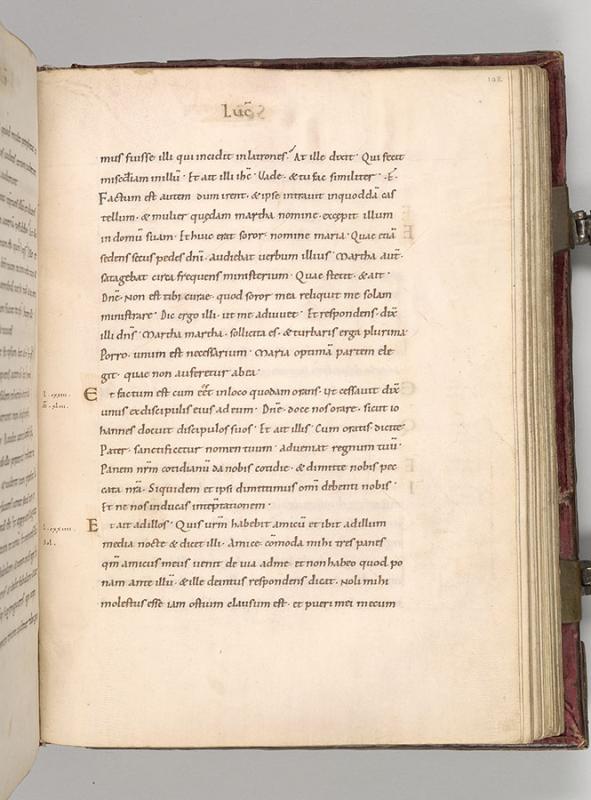 Lucā
mus fuisse illi qui incidit inlatrones. At ille dixit. Qui fecit
misedіam inillū. Et ait illi ihc̄. Vade. & tu fac similiter.
Factum est autem dum irent. & ipse intravit inquoddā cas
tellum. & mulier quędam martha nomine. excepit illum
in domū suam. Et huic erat soror. nomine maria. Quae etiā
sedens secus pedes dn̄i. audiebat verbum illius. Martha aut̄.
satagebat circa frequens ministerium. Quae stetit. & ait.
Dn̄e. Non est tibi curae. quod soror mea reliquit me solam
ministrare. Dic ergo illi. ut me adiuvet. Et respondens. dix̄
illi dn̄s. Martha martha. sollicita es. & turbaris erga plurima
Porro. unum est necessarium. Maria optimā partem ele
git. quae non auferetur abea.
Et factum est cum eēt inloco quodam orans. Ut cessavit dix̄
unus exdiscipulis eius ad eum. Dn̄e. doce nos orare. sicut io
hannes docuit discipulos suos. Et ait illis. Cum oratis. dicite
Pater. sanctificetur nomen tuum. adveniat regnum tuū.
Panem nr̄m cotidianū da nobis cotidie. & dimitte nobis pec
cata nr̄a. Siquidem et ipsi dimittimus om̄i debenti nobis.
Et ne nos inducas intēptationem.
Et ait adillos. Quis ur̄m habebit amicū et ibit adillum
media nocte & dicet illi. Amice. cōmoda mihi tres panes
qm̄ amicus meus venit de via adme. et non habeo quod po
nam ante illū. & ille deintus respondens dicat. Noli mihi
molestus esse iam ostium clausum est. et pueri mei mecum